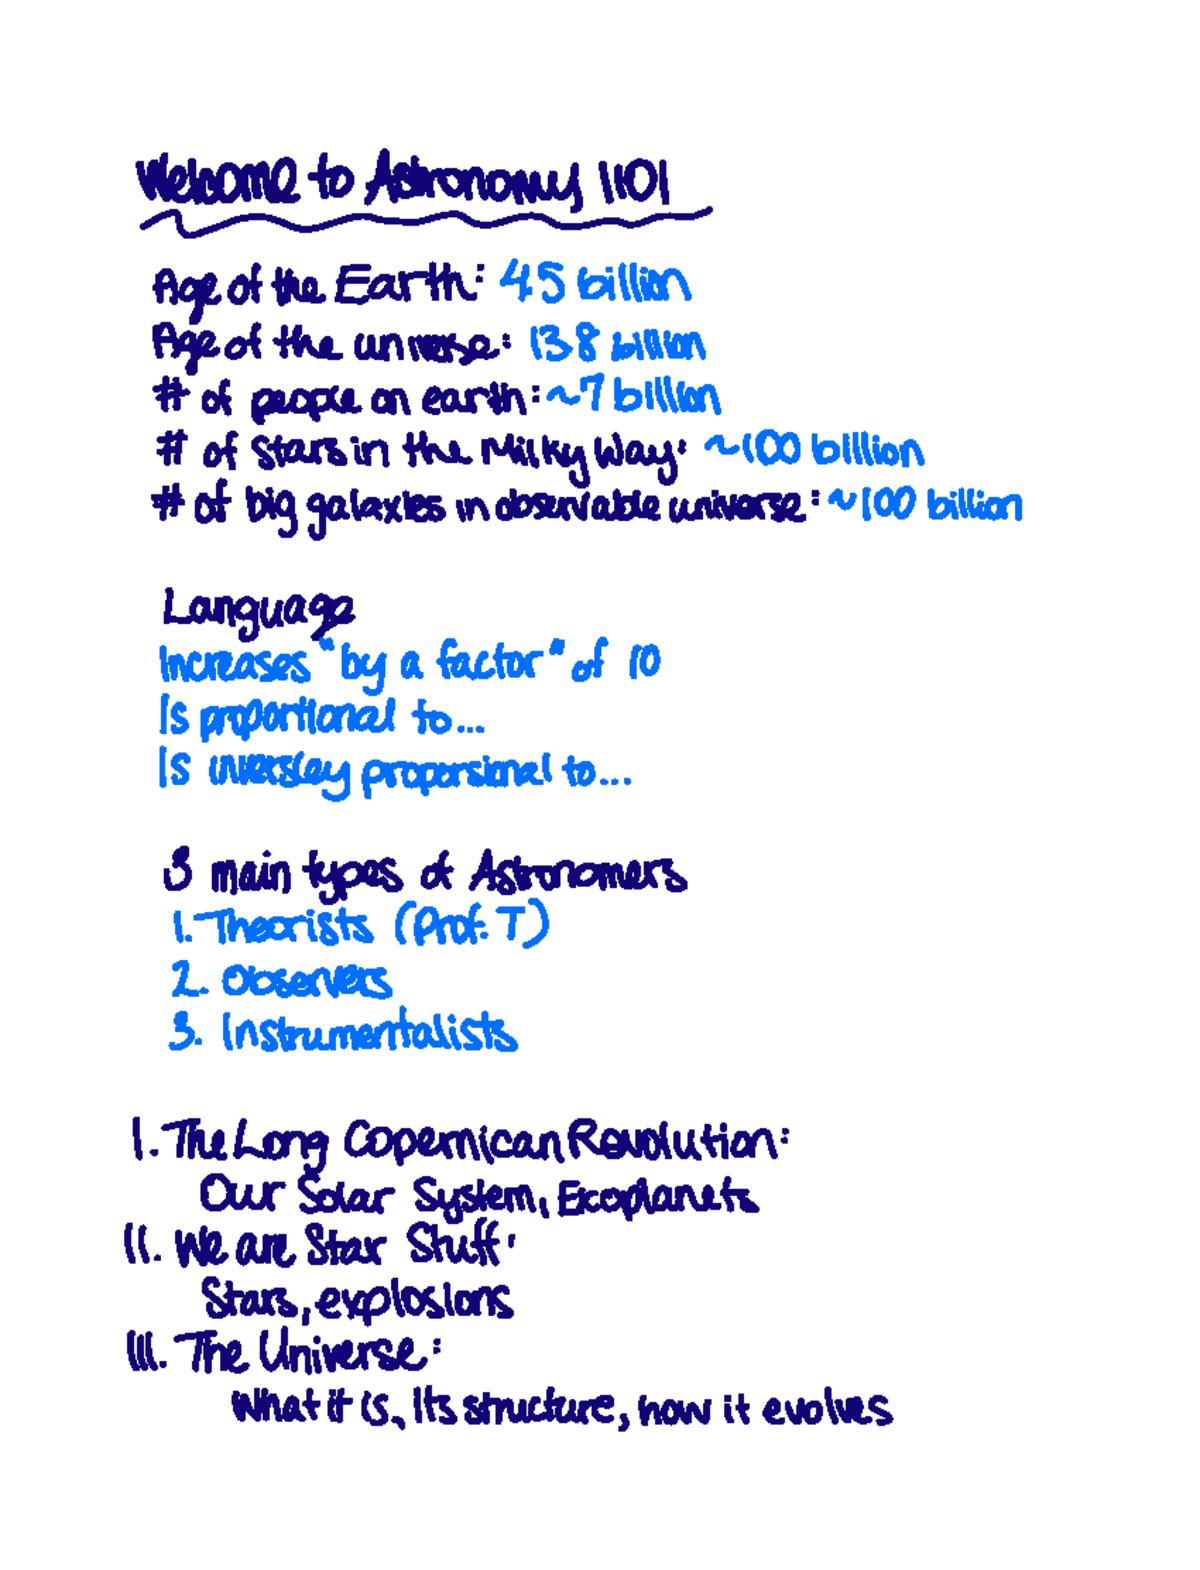 Welcome to Astronomy 1101
Age of the Earth: 4.5 billion
Age of the universe: 13.8 billion
# of people on earth: ~7 billion
# of stars in the Milky Way: ~100 billion
# of big galaxies in observable universe: ~100 billion
Language
Increases "by a factor" of 10
Is proportional to...
Is inversley proporsional to...
3 main types of Astronomers
1. Theorists (Prof. T)
2. Observers
3. Instrumentalists
I. The Long Copernican Revolution:
Our Solar System, Exoplanets
II. We are Star Stuff:
Stars, explosions
III. The Universe:
What it is, Its structure, how it evolves